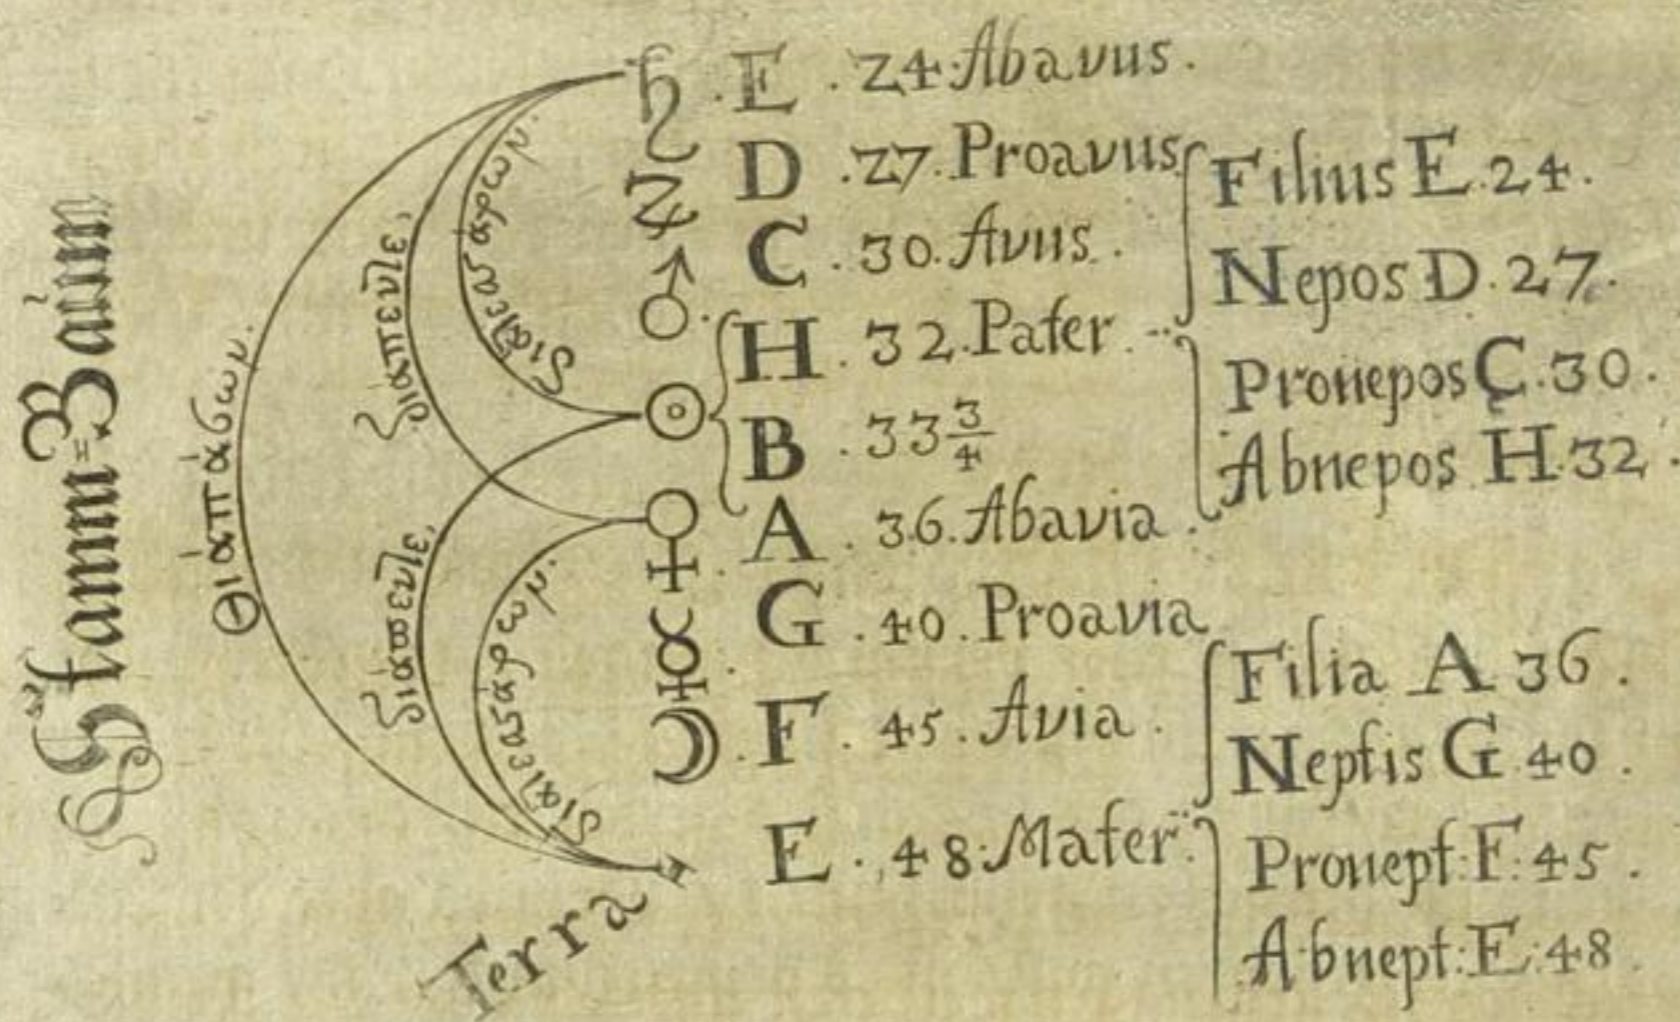 Stamm=Baum
Διαπασων.
διαπεντε,
διατεσσαρων.
διαπεντε,
διατεσσαρων.
♄ . E . 24. Abavus.
♃ D . 27. Proavus
♂ . C . 30. Avus.
H . 32. Pater
☉ B . 33 3/4
♀ . A . 36. Abavia.
☿ . G . 40. Proavia
☽ . F . 45. Avia.
Terra E . 48. Mater.
Filius E. 24.
Nepos D. 27.
Pronepos C. 30.
Abnepos H. 32.
Filia A 36.
Neptis G. 40.
Pronept: F. 45.
Abnept: E. 48.